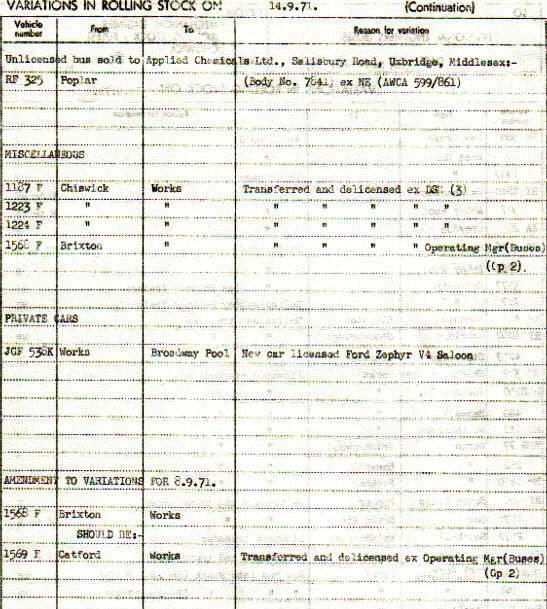 VARIATIONS IN ROLLING STOCK ON: 14.9.71. (Continuation)
Vehicle number From To Reason for variation
Unlicensed bus sold to Applied Chemicals Ltd., Salisbury Road, Uxbridge, Middlesex:-
RF 325 Poplar (Body No. 7841) ex NE (AWCA 599/861)
MISCELLANEOUS
1187 F Chiswick Works Transferred and delicensed ex DSK (3)
1223 F " " " " " " "
1224 F " " " " " " "
1568 F Brixton " " " " " Operating Mgr(Buses)
(Gp 2).
PRIVATE CARS
JGF 536K Works Broadway Pool New car licensed Ford Zephyr V4 Saloon
AMENDMENT TO VARIATIONS FOR 8.9.71.
1568 F Brixton Works
SHOULD BE:-
1569 F Catford Works Transferred and delicensed ex Operating Mgr(Buses)
(Gp 2)